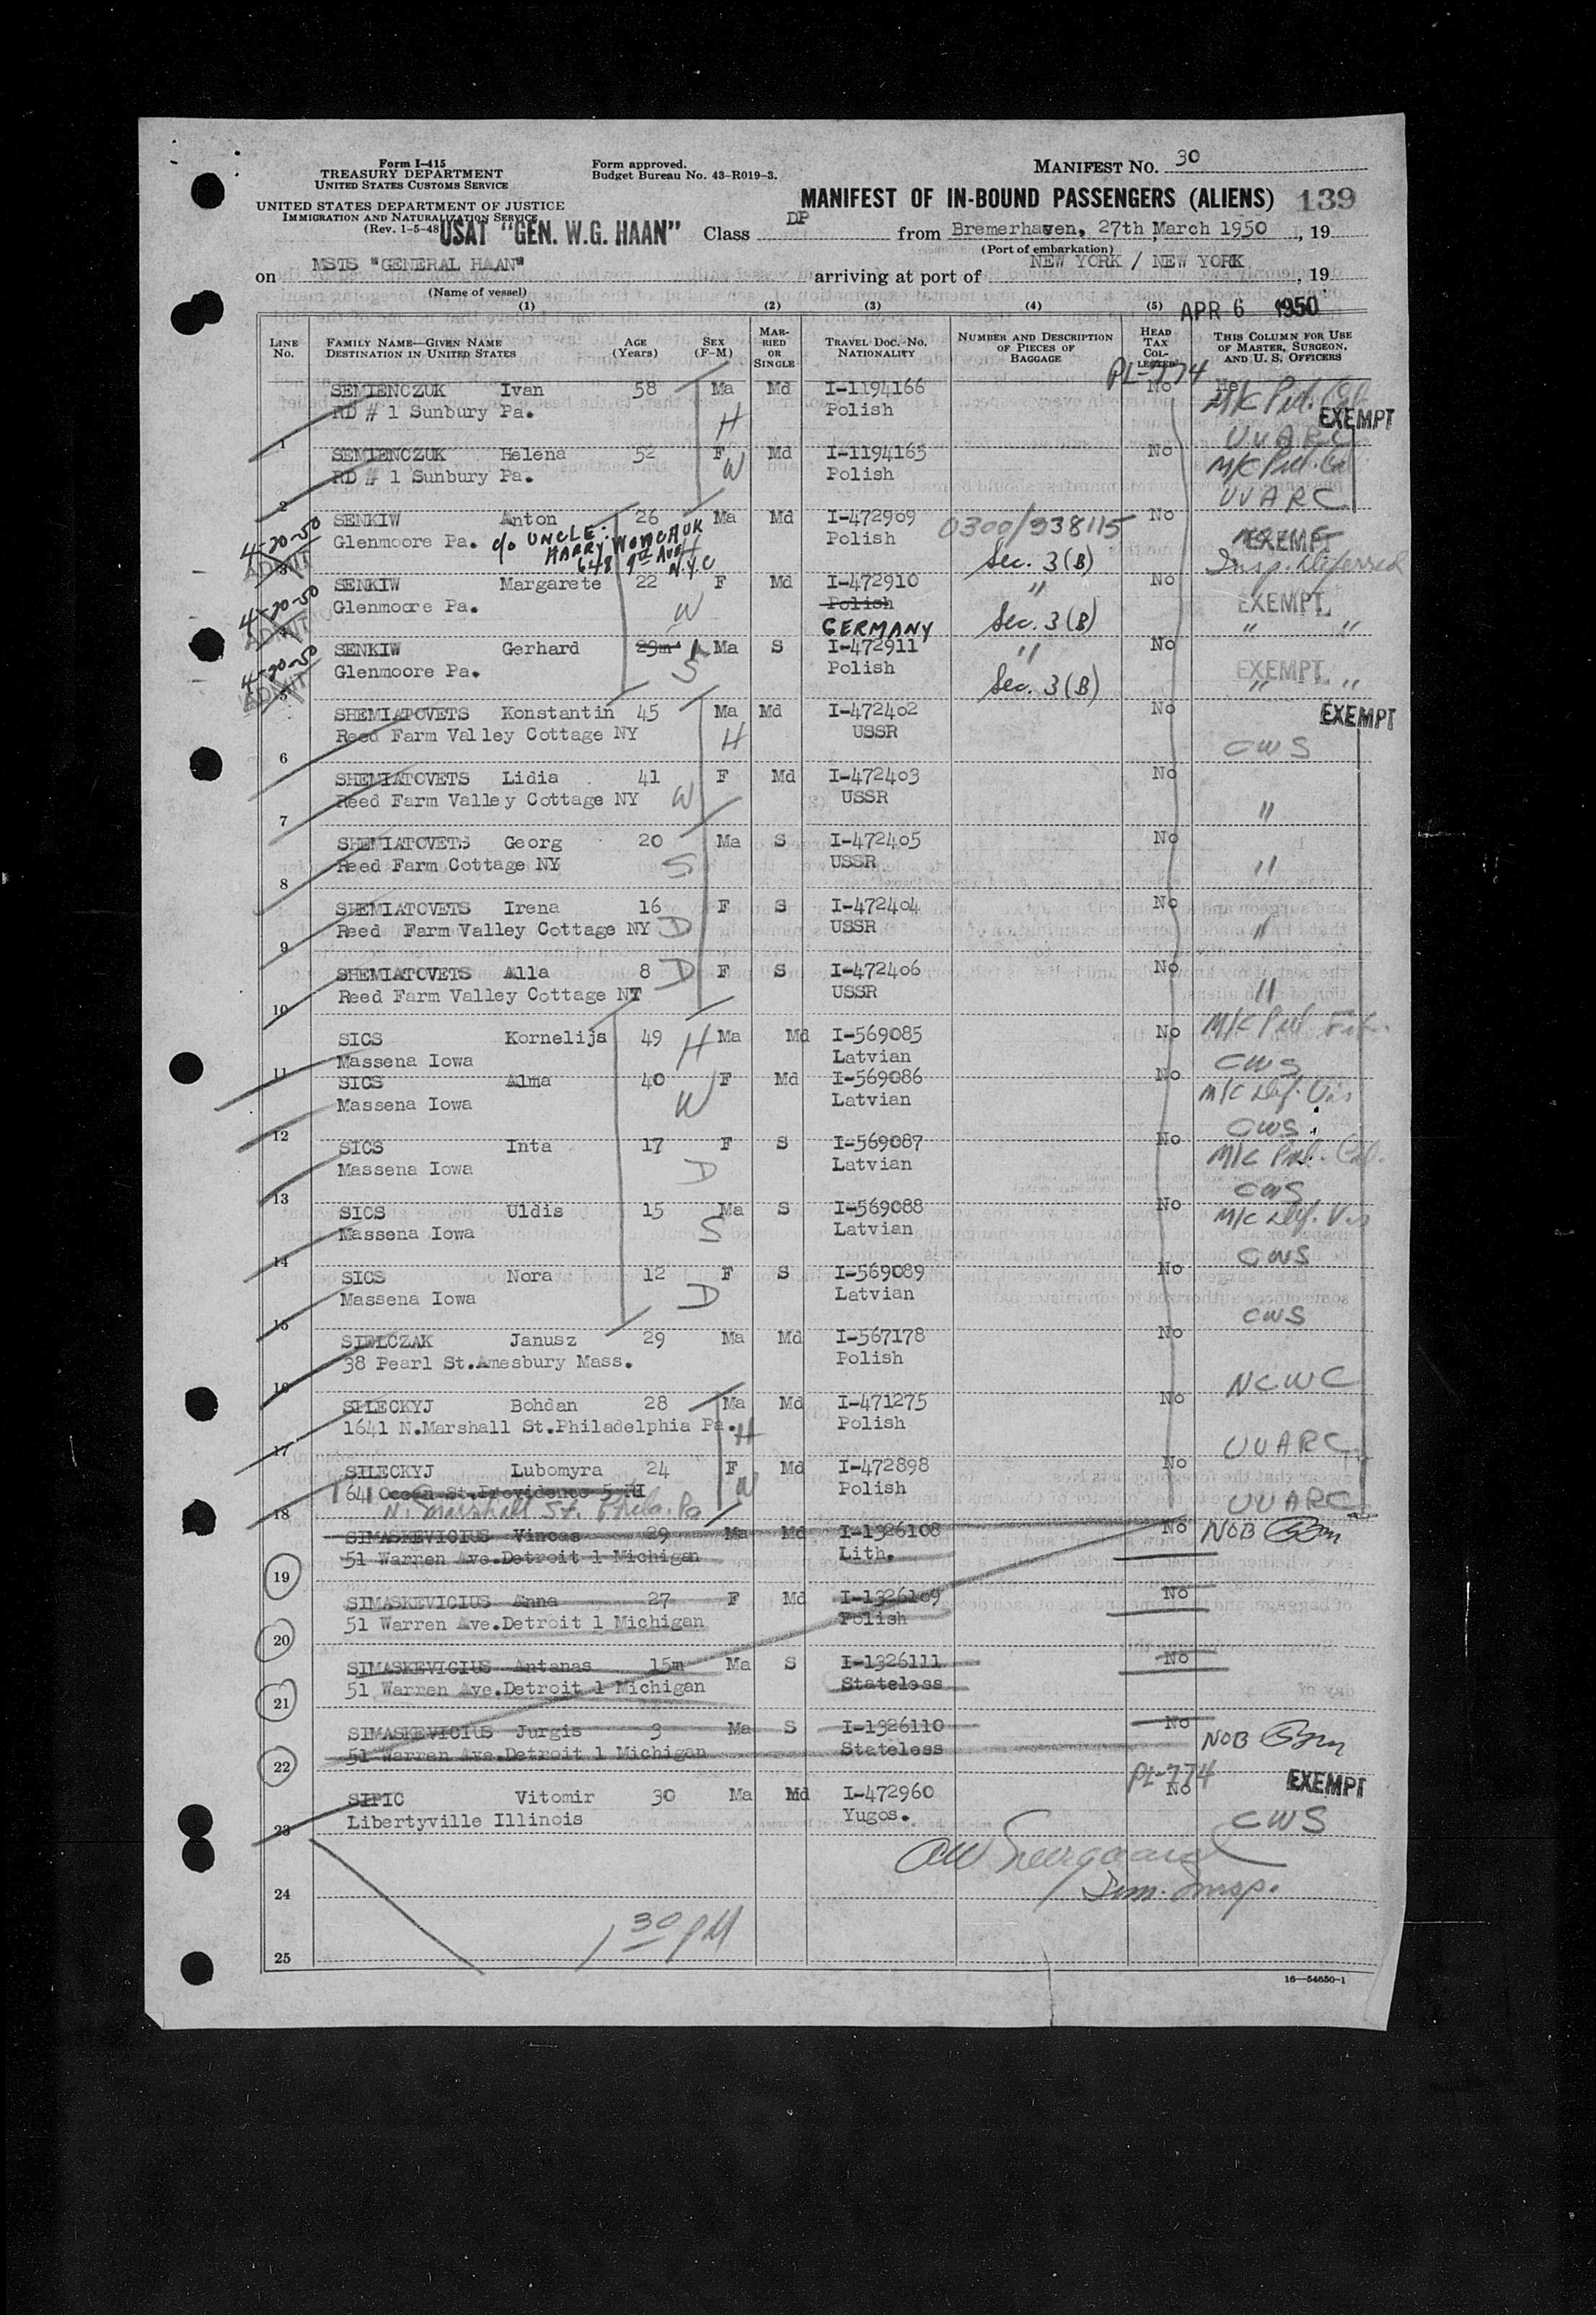 Form I-415
TREASURY DEPARTMENT
UNITED STATES CUSTOMS SERVICE
UNITED STATES DEPARTMENT OF JUSTICE
IMMIGRATION AND NATURALIZATION SERVICE
(Rev. 1-5-48)
Form approved.
Budget Bureau No. 43-R019-3.
MANIFEST NO. 30
MANIFEST OF IN-BOUND PASSENGERS (ALIENS) 139
USAT "GEN. W.G. HAAN" Class DP from Bremerhaven, 27th March 1950, 19
(Port of embarkation)
on MSTS "GENERAL HAAN" arriving at port of NEW YORK / NEW YORK, 19
(Name of vessel)
APR 6 1950
(1) (2) (3) (4) (5)
LINE No. FAMILY NAME—GIVEN NAME DESTINATION IN UNITED STATES AGE (Years) SEX (F-M) MARRIED OR SINGLE TRAVEL DOC. NO. NATIONALITY NUMBER AND DESCRIPTION OF PIECES OF BAGGAGE HEAD TAX COLLECTED THIS COLUMN FOR USE OF MASTER, SURGEON, AND U. S. OFFICERS
PL-774
SEMIENCZUK Ivan 58 Ma Md I-1194166 No
RD # 1 Sunbury Pa. H Polish EXEMPT
1 UUARC
SEMIENCZUK Helena 52 F Md I-1194165 No
RD # 1 Sunbury Pa. W Polish
2 UUARC
SENKIW Anton 26 Ma Md I-472909 0300/938115 No
Glenmoore Pa. c/o UNCLE: HARRY 648 9th AVE N.Y.C H Polish Sec. 3(B) EXEMPT
4-20-50 ADMIT 3 Insp. Deferred
SENKIW Margarete 22 F Md I-472910 " No
Glenmoore Pa. W Polish GERMANY Sec. 3(B) EXEMPT
4-20-50 ADMIT 4 " "
SENKIW Gerhard 23m 1 Ma S I-472911 " No
Glenmoore Pa. S Polish Sec. 3(B) EXEMPT
4-20-50 ADMIT 5 " "
SHEMIATOVETS Konstantin 45 Ma Md I-472402 No EXEMPT
Reed Farm Valley Cottage NY H USSR
6 CWS
SHEMIATOVETS Lidia 41 F Md I-472403 No
Reed Farm Valley Cottage NY W USSR
7 "
SHEMIATOVETS Georg 20 Ma S I-472405 No
Reed Farm Cottage NY S USSR
8 "
SHEMIATOVETS Irena 16 F S I-472404 No
Reed Farm Valley Cottage NY D USSR
9 "
SHEMIATOVETS Alla 8 D F S I-472406 No
Reed Farm Valley Cottage NY USSR
10 "
SICS Kornelijs 49 H Ma Md I-569085 No
Massena Iowa Latvian
11 CWS
SICS Alma 40 F Md I-569086 No
Massena Iowa W Latvian
12 CWS
SICS Inta 17 F S I-569087 No
Massena Iowa D Latvian
13 CWS
SICS Uldis 15 Ma S I-569088 No
Massena Iowa S Latvian
14 CWS
SICS Nora 12 F S I-569089 No
Massena Iowa D Latvian
15 CWS
SIELCZAK Janusz 29 Ma Md I-567178 No
38 Pearl St.Amesbury Mass. Polish
16 NCWC
SILECKYJ Bohdan 28 Ma Md I-471275 No
1641 N.Marshall St.Philadelphia Pa. H Polish
17 UUARC
SILECKYJ Lubomyra 24 F Md I-472898 No
1641 Ocean St.Providence 5 RI W Polish
N. Marshall St. Phila. Pa
18 UUARC
SIMASKEVICIUS Vincas 29 Ma Md I-1326108 No NOB
51 Warren Ave.Detroit 1 Michigan Lith.
19
SIMASKEVICIUS Anna 27 F Md I-1326109 No
51 Warren Ave.Detroit 1 Michigan Polish
20
SIMASKEVICIUS Antanas 15m Ma S I-1326111 No
51 Warren Ave.Detroit 1 Michigan Stateless
21
SIMASKEVICIUS Jurgis 3 Ma S I-1326110 No NOB
51 Warren Ave.Detroit 1 Michigan Stateless
22
PL-774
SIPIC Vitomir 30 Ma Md I-472960 No EXEMPT
Libertyville Illinois Yugos.
23 CWS
Imm. Insp.
24
1 30 PM
25
16—54650-1